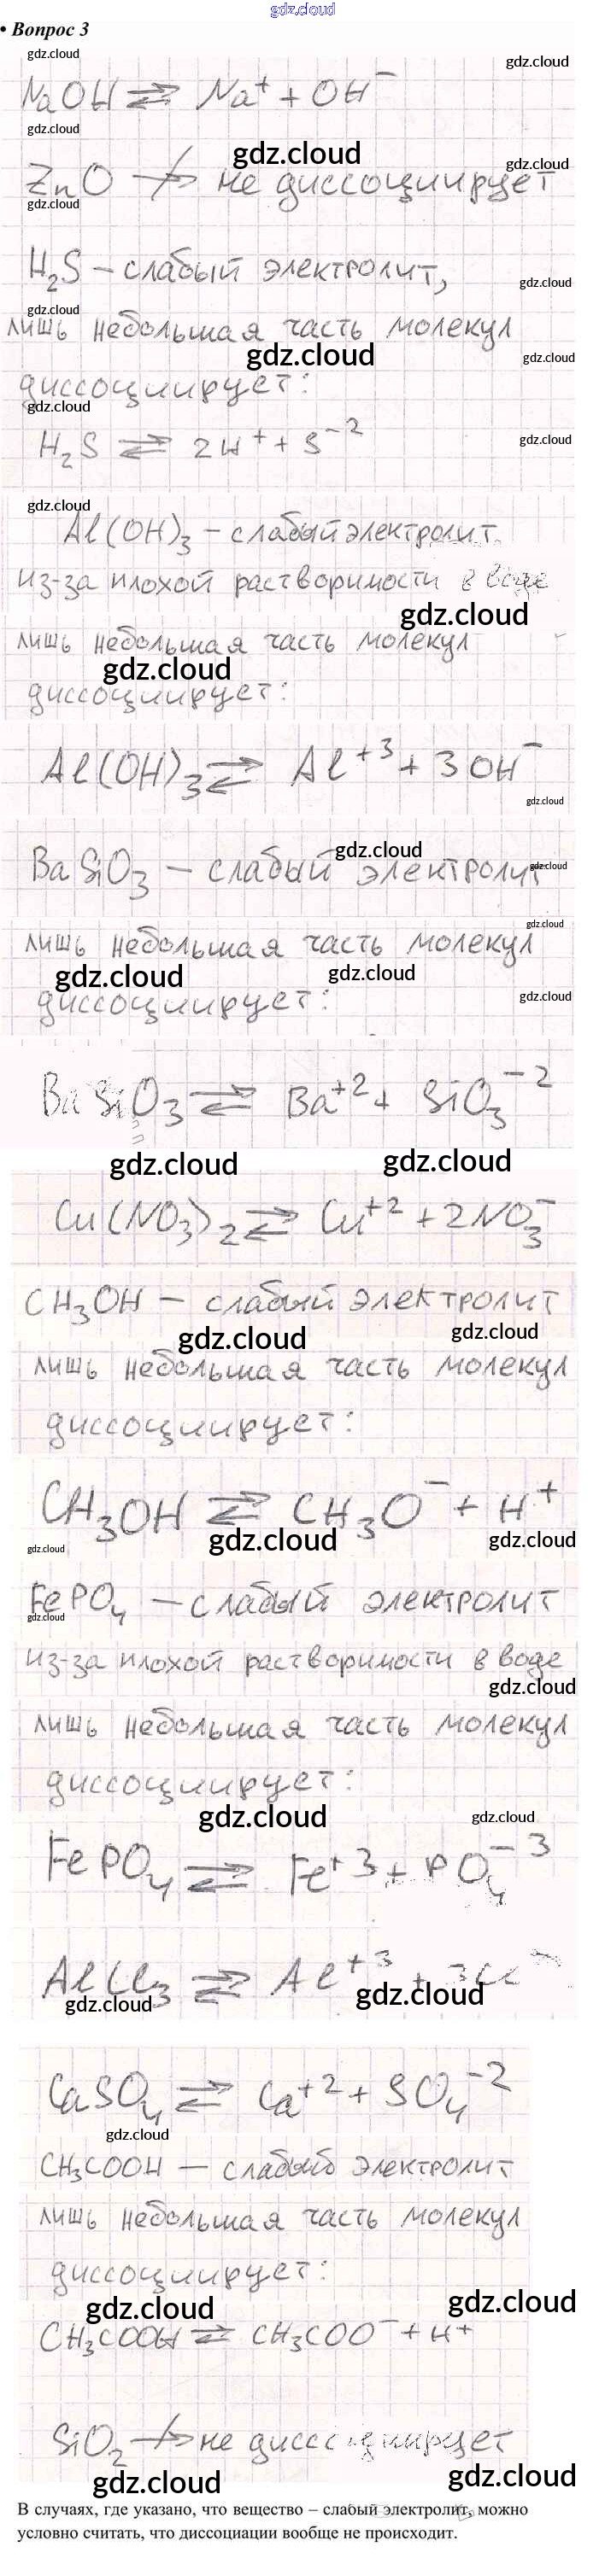 gdz.cloud
• Вопрос 3
gdz.cloud
gdz.cloud
NaOH ⇄ Na⁺ + OH⁻
gdz.cloud
gdz.cloud
gdz.cloud
ZnO ↛ не диссоциирует
gdz.cloud
H₂S – слабый электролит,
gdz.cloud
gdz.cloud
лишь небольшая часть молекул
gdz.cloud
gdz.cloud
диссоциирует:
gdz.cloud
H₂S ⇄ 2H⁺ + S⁻²
gdz.cloud
gdz.cloud
Al(OH)₃ – слабый электролит
из-за плохой растворимости в воде
gdz.cloud
лишь небольшая часть молекул
gdz.cloud
диссоциирует:
Al(OH)₃ ⇄ Al⁺³ + 3OH⁻
gdz.cloud
gdz.cloud
BaSiO₃ – слабый электролит
gdz.cloud
gdz.cloud
лишь небольшая часть молекул
gdz.cloud
gdz.cloud
диссоциирует:
gdz.cloud
BaSiO₃ ⇄ Ba⁺² + SiO₃⁻²
gdz.cloud
gdz.cloud
Cu(NO₃)₂ ⇄ Cu⁺² + 2NO₃⁻
CH₃OH – слабый электролит
gdz.cloud
gdz.cloud
лишь небольшая часть молекул
диссоциирует:
CH₃OH ⇄ CH₃O⁻ + H⁺
gdz.cloud
gdz.cloud
gdz.cloud
FePO₄ – слабый электролит
gdz.cloud
из-за плохой растворимости в воде
gdz.cloud
лишь небольшая часть молекул
диссоциирует:
gdz.cloud
gdz.cloud
FePO₄ ⇄ Fe⁺³ + PO₄⁻³
AlCl₃ ⇄ Al⁺³ + 3Cl⁻
gdz.cloud
gdz.cloud
CaSO₄ ⇄ Ca⁺² + SO₄⁻²
gdz.cloud
CH₃COOH – слабый электролит
лишь небольшая часть молекул
диссоциирует:
gdz.cloud
gdz.cloud
CH₃COOH ⇄ CH₃COO⁻ + H⁺
SiO₂ ↛ не диссоциирует
gdz.cloud
gdz.cloud
В случаях, где указано, что вещество – слабый электролит, можно
условно считать, что диссоциации вообще не происходит.